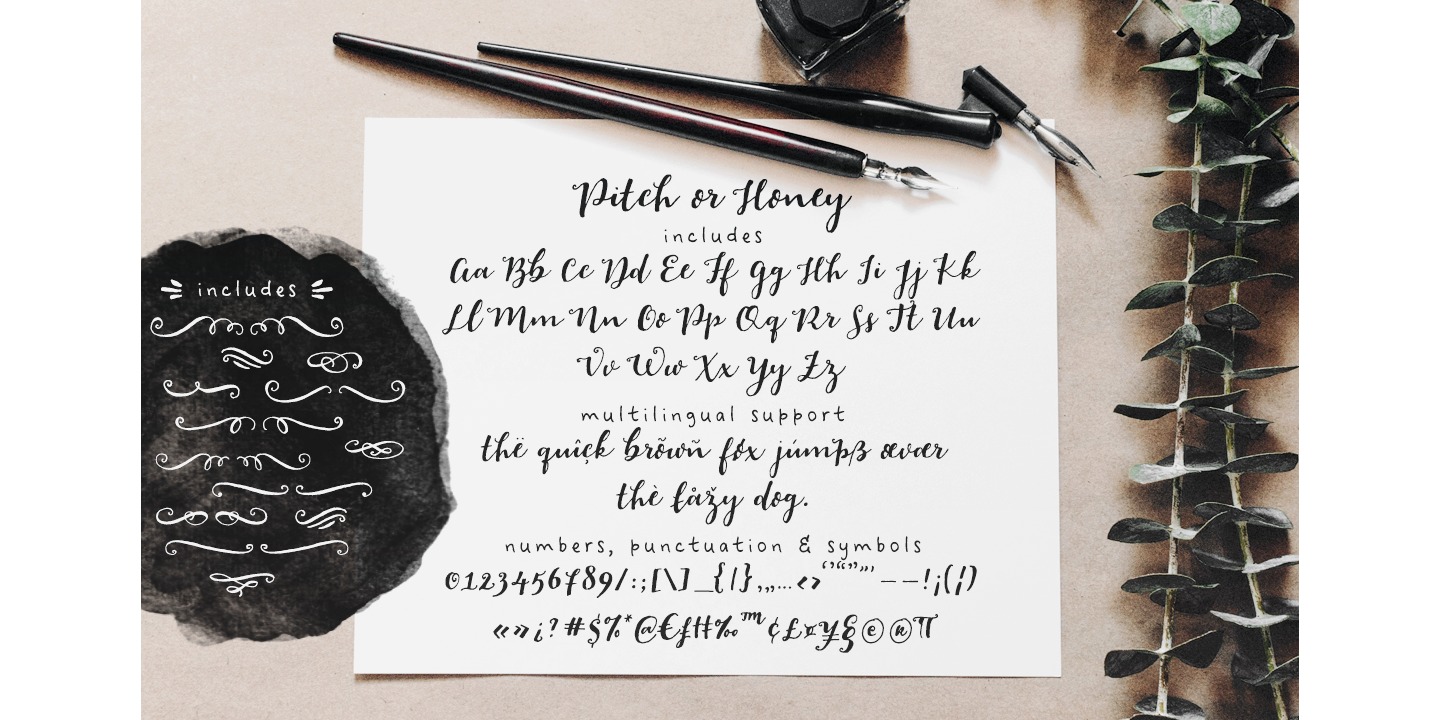 Pitch or Honey
includes
Aa Bb Cc Dd Ee Ff Gg Hh Ii Jj Kk
Ll Mm Nn Oo Pp Qq Rr Ss Tt Uu
Vv Ww Xx Yy Zz
multilingual support
thë quîçk brõwñ fóx júmpþß œvær
thè łåžy dog.
numbers, punctuation & symbols
0123456789/:;[\]_{|}‚„…‹›‘’“”"'–—!¡(¦)
«»¿?#$%*@€ƒ‰™¢£¤¥§©®
includes